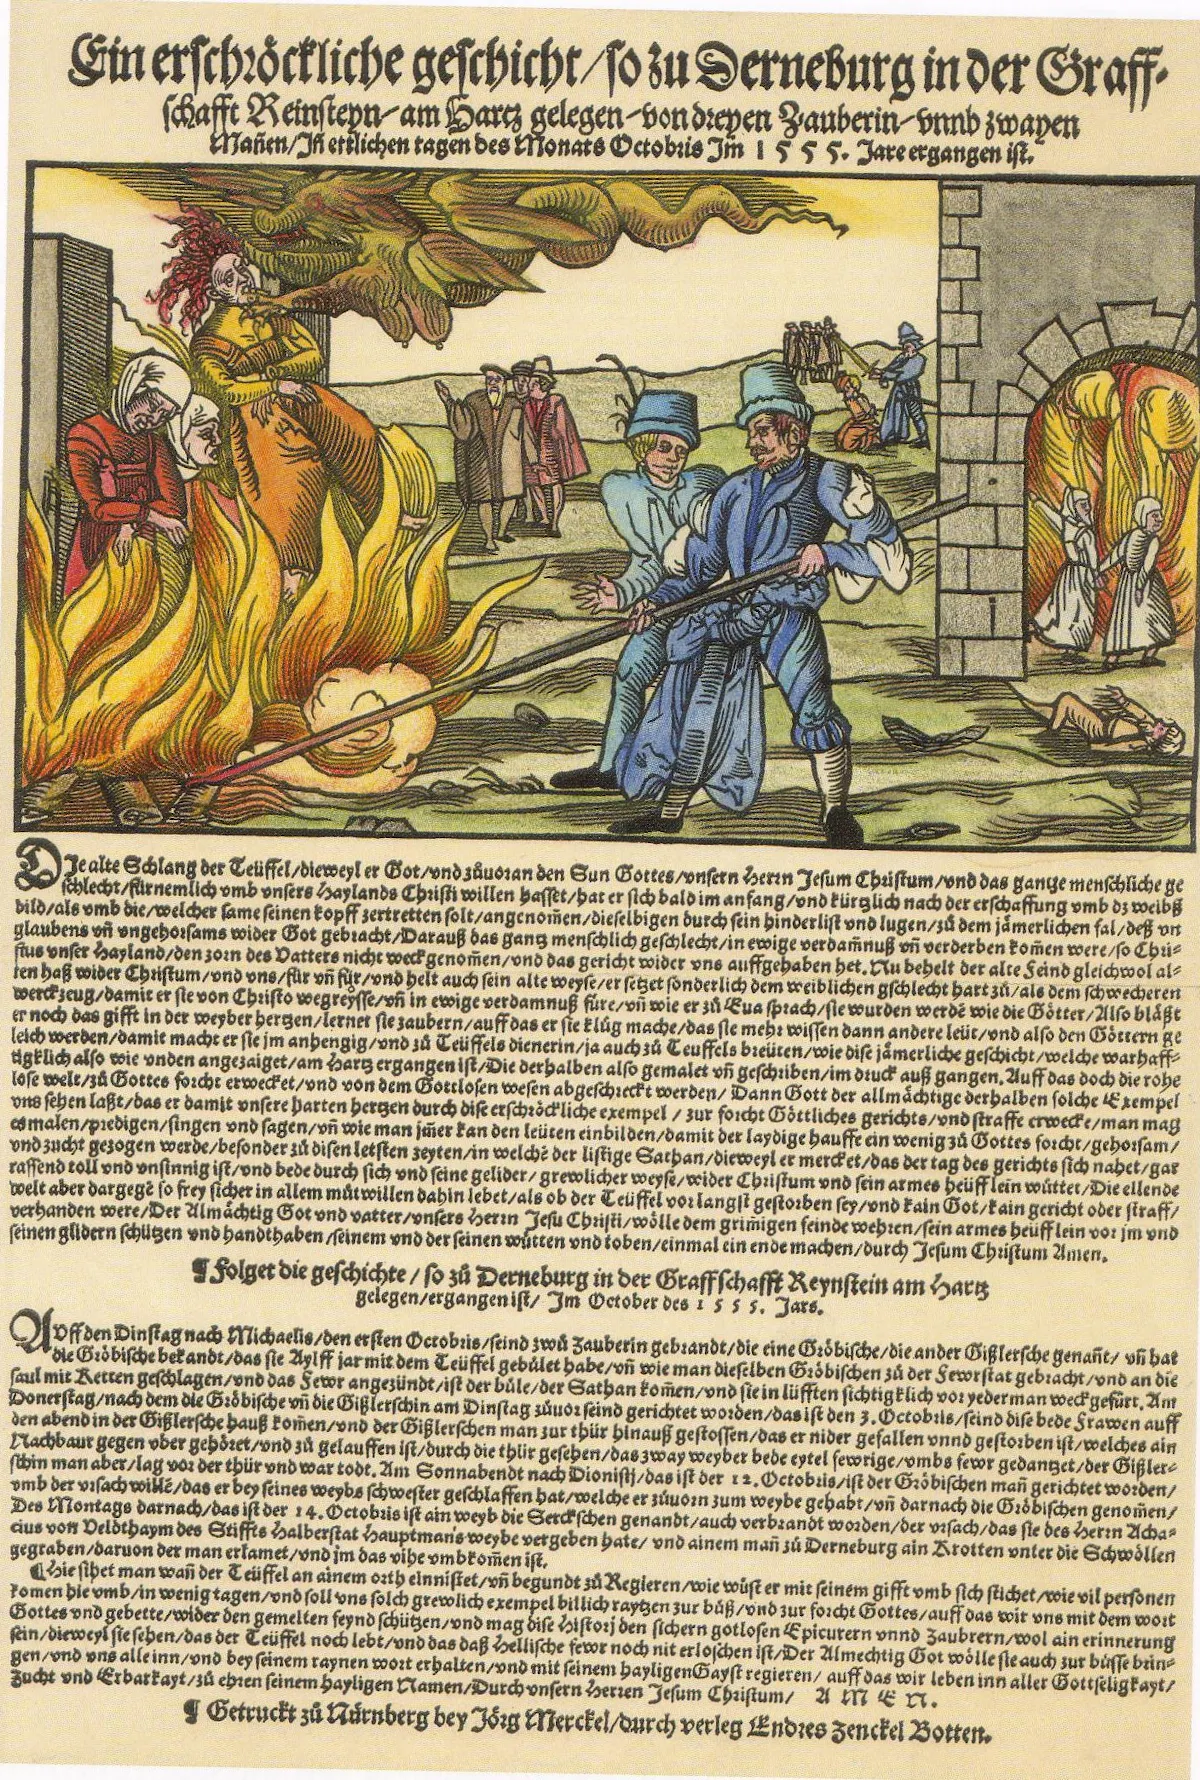 Ein erschröckliche geschicht / so zu Derneburg in der Graff-
schafft Reinsteyn / am Hartz gelegen / von dreyen Zauberin / vnnd zwayen
Mañen / Jñ ettlichen tagen des Monats Octobris Jm 1 5 5 5. Jare ergangen ist.
DJe alte Schlang der Teüffel / dieweyl er Got / vnd zůuoran den Sun Gottes / vnsern Herrn Jesum Christum / vnd das gantze menschliche ge
schlecht / fürnemlich vmb vnsers Haylands Christi willen hasset / hat er sich bald im anfang / vnd kürtzlich nach der erschaffung vmb dz weibß
bild / als vmb die / welcher same seinen kopff zertretten solt / angenom̃en / dieselbigen durch sein hinderlist vnd lugen / zů dem jämerlichen fal / deß vn
glaubens vñ vngehorsams wider Got gebracht / Darauß das gantz menschlich geschlecht / in ewige verdam̃nuß vñ verderben kom̃en were / so Chri-
stus vnser Hayland / den zorn des Vatters nicht weck genom̃en / vnd das gericht wider vns auffgehaben het. Nu behelt der alte Feind gleichwol al-
ten haß wider Christum / vnd vns / für vñ für / vnd helt auch sein alte weyse / er setzet sonderlich dem weiblichen gschlecht hart zů / als dem schwecheren
werckzeug / damit er sie von Christo wegreysse / vñ in ewige verdamnuß füre / vñ wie er zů Eua sprach / sie wurden werdē wie die Götter / Also bläßt
er noch das gifft in der weyber hertzen / lernet sie zaubern / auff das er sie klůg mache / das sie mehr wissen dann andere leüt / vnd also den Göttern ge
leich werden / damit macht er sie jm anhengig / vnd zů Teüffels dienerin / ja auch zů Teuffels breüten / wie dise jämerliche geschicht / welche warhaff-
tigklich also wie vnden angezaiget / am Hartz ergangen ist / Die derhalben also gemalet vñ geschriben / im druck auß gangen. Auff das doch die rohe
lose welt / zů Gottes forcht erwecket / vnd von dem Gottlosen wesen abgeschreckt werden / Dann Gott der allmächtige derhalben solche Exempel
vns sehen laßt / das er damit vnsere harten hertzen durch dise erschröckliche exempel / zur forcht Göttliches gerichts / vnd straffe erwecke / man mag
es malen / predigen / singen vnd sagen / vñ wie man jm̃er kan den leüten einbilden / damit der laydige hauffe ein wenig zů Gottes forcht / gehorsam /
vnd zucht gezogen werde / besonder zů disen letsten zeyten / in welchē der listige Sathan / dieweyl er mercket / das der tag des gerichts sich nahet / gar
raffend toll vnd vnsinnig ist / vnd bede durch sich vnd seine gelider / grewlicher weyse / wider Christum vnd sein armes heüfflein wüttet / Die ellende
welt aber dargegē so frey sicher in allem můtwillen dahin lebet / als ob der Teüffel vor langst gestorben sey / vnd kain Got / kain gericht oder straff /
verhanden were / Der Almächtig Got vnd vatter / vnsers Herrn Jesu Christi / wölle dem grim̃igen feinde wehren / sein armes heüfflein vor jm vnd
seinen glidern schützen vnd handthaben / seinem vnd der seinen wütten vnd toben / einmal ein ende machen / durch Jesum Christum Amen.
¶ Folget die geschichte / so zů Derneburg in der Graffschafft Reynstein am Hartz
gelegen / ergangen ist / Jm October des 1 5 5 5. Jars.
AUff den Dinstag nach Michaelis / den ersten Octobris / seind zwů Zauberin gebrandt / die eine Gröbische / die ander Gißlersche genañt / vñ hat
die Gröbische bekandt / das sie Aylff jar mit dem Teüffel gebůlet habe / vñ wie man dieselben Gröbischen zů der Fewrstat gebracht / vnd an die
saul mit Ketten geschlagen / vnd das Fewr angezündt / ist der bůle / der Sathan kom̃en / vnd sie in lüfften sichtigklich vor yederman weck gefürt. Am
Donerstag / nach dem die Gröbische vñ die Gißlerschin am Dinstag zůuor seind gerichtet worden / das ist den 3. Octobris / seind dise bede Frawen auff
den abend in der Gißlersche hauß kom̃en / vnd der Gißlerschen man zur thür hinauß gestossen / das er nider gefallen vnnd gestorben ist / welches ain
Nachbaur gegen vber gehöret / vnd zů gelauffen ist / durch die thür gesehen / das zway weyber bede eytel fewrige / vmbs fewr gedantzet / der Gißler-
schin man aber / lag vor der thür vnd war todt. Am Sonnabendt nach Dionisij / das ist der 12. Octobris / ist der Gröbischen mañ gerichtet worden /
vmb der vrsach willē / das er bey seines weybs schwester geschlaffen hat / welche er zůuorn zum weybe gehabt / vñ darnach die Gröbischen genom̃en /
Des Montags darnach / das ist der 14. Octobris ist ain weyb die Serckschen genandt / auch verbrandt worden / der vrsach / das sie des Herrn Acha-
cius von Veldthaym des Stiffts Halberstat Hauptmans weybe vergeben hate / vnd ainem mañ zů Derneburg ain Krotten vnter die Schwöllen
gegraben / daruon der man erlamet / vnd jm das vihe vmbkom̃en ist.
¶ Hie sihet man wañ der Teüffel an ainem orth einnistet / vñ begundt zů Regieren / wie wüst er mit seinem gifft vmb sich stichet / wie vil personen
komen hie vmb / in wenig tagen / vnd soll vns solch grewlich exempel billich raytzen zur bůß / vnd zur forcht Gottes / auff das wir vns mit dem wort
Gottes vnd gebette / wider den gemelten feynd schützen / vnd mag dise Historj den sichern gotlosen Epicurern vnnd Zaubrern / wol ain erinnerung
sein / dieweyl sie sehen / das der Teüffel noch lebt / vnd das daß Hellische fewr noch nit erloschen ist / Der Almechtig Got wölle sie auch zur bůsse brin-
gen / vnd vns alle inn / vnd bey seinem raynen wort erhalten / vnd mit seinem hayligen Gayst regieren / auff das wir leben inn aller Gottseligkayt /
Zucht vnd Erbarkayt / zů ehren seinem hayligen Namen / Durch vnsern Herren Jesum Christum / A M E N.
¶ Getruckt zů Nürnberg bey Jörg Merckel / durch verleg Endres Zenckel Botten.